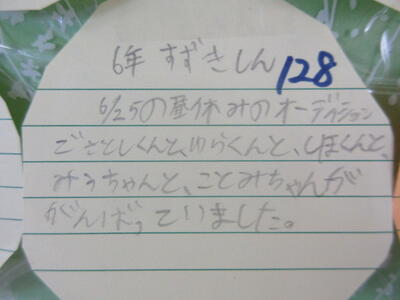 6年 すずきしん 128
6/25の昼休みのオーディション
でさとしくんと、ゆらくんと、しほくんと、
みうちゃんと、ことみちゃんが
がんばっていました。